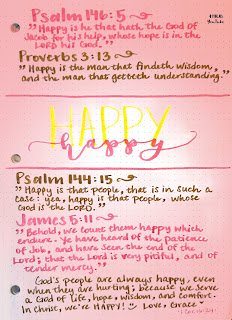 Psalm 146:5
"Happy is he that hath the God of
Jacob for his help, whose hope is in the
LORD his God."
Proverbs 3:13
"Happy is the man that findeth wisdom,
and the man that getteth understanding."
HAPPY
happy
Psalm 144:15
"Happy is that people, that is in such a
case: yea, happy is that people, whose
God is the LORD."
James 5:11
"Behold, we count them happy which
endure. Ye have heard of the patience
of Job, and have seen the end of the
Lord; that the Lord is very pitiful, and of
tender mercy."
God's people are always happy, even
when they are hurting; because we serve
a God of life, hope, wisdom, and comfort.
In Christ, we're HAPPY! Love, Grace